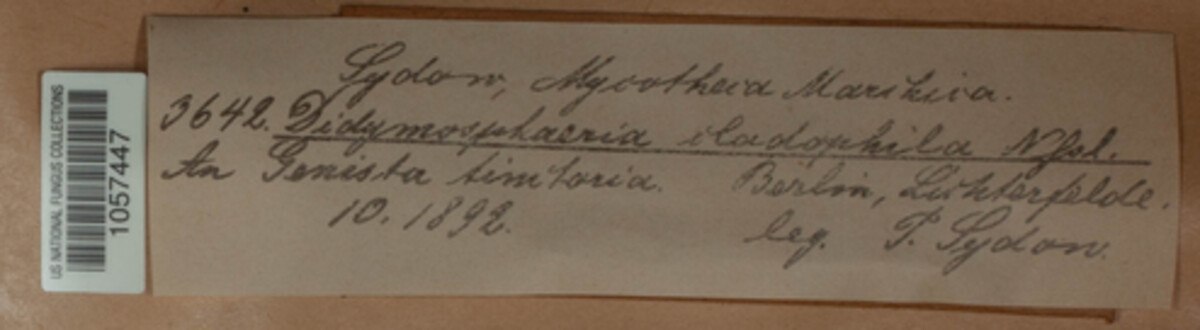 US NATIONAL FUNGUS COLLECTIONS
1057447
Sydow, Mycotheca Marchica.
3642. Didymosphaeria cladophila Nssl.
An Genista tinctoria. Berlin, Lichterfelde.
10. 1892. leg. P. Sydow.